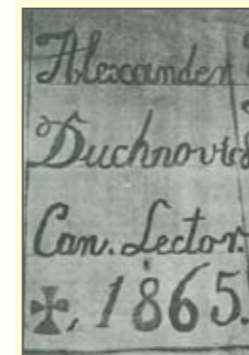 Alexander
Duchnovic
Can. Lector.
✠, 1865.